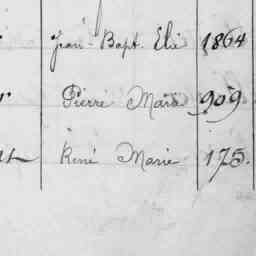 Jean-Bapt. Elie 1864
Pierre Marie 909
René Marie 175.